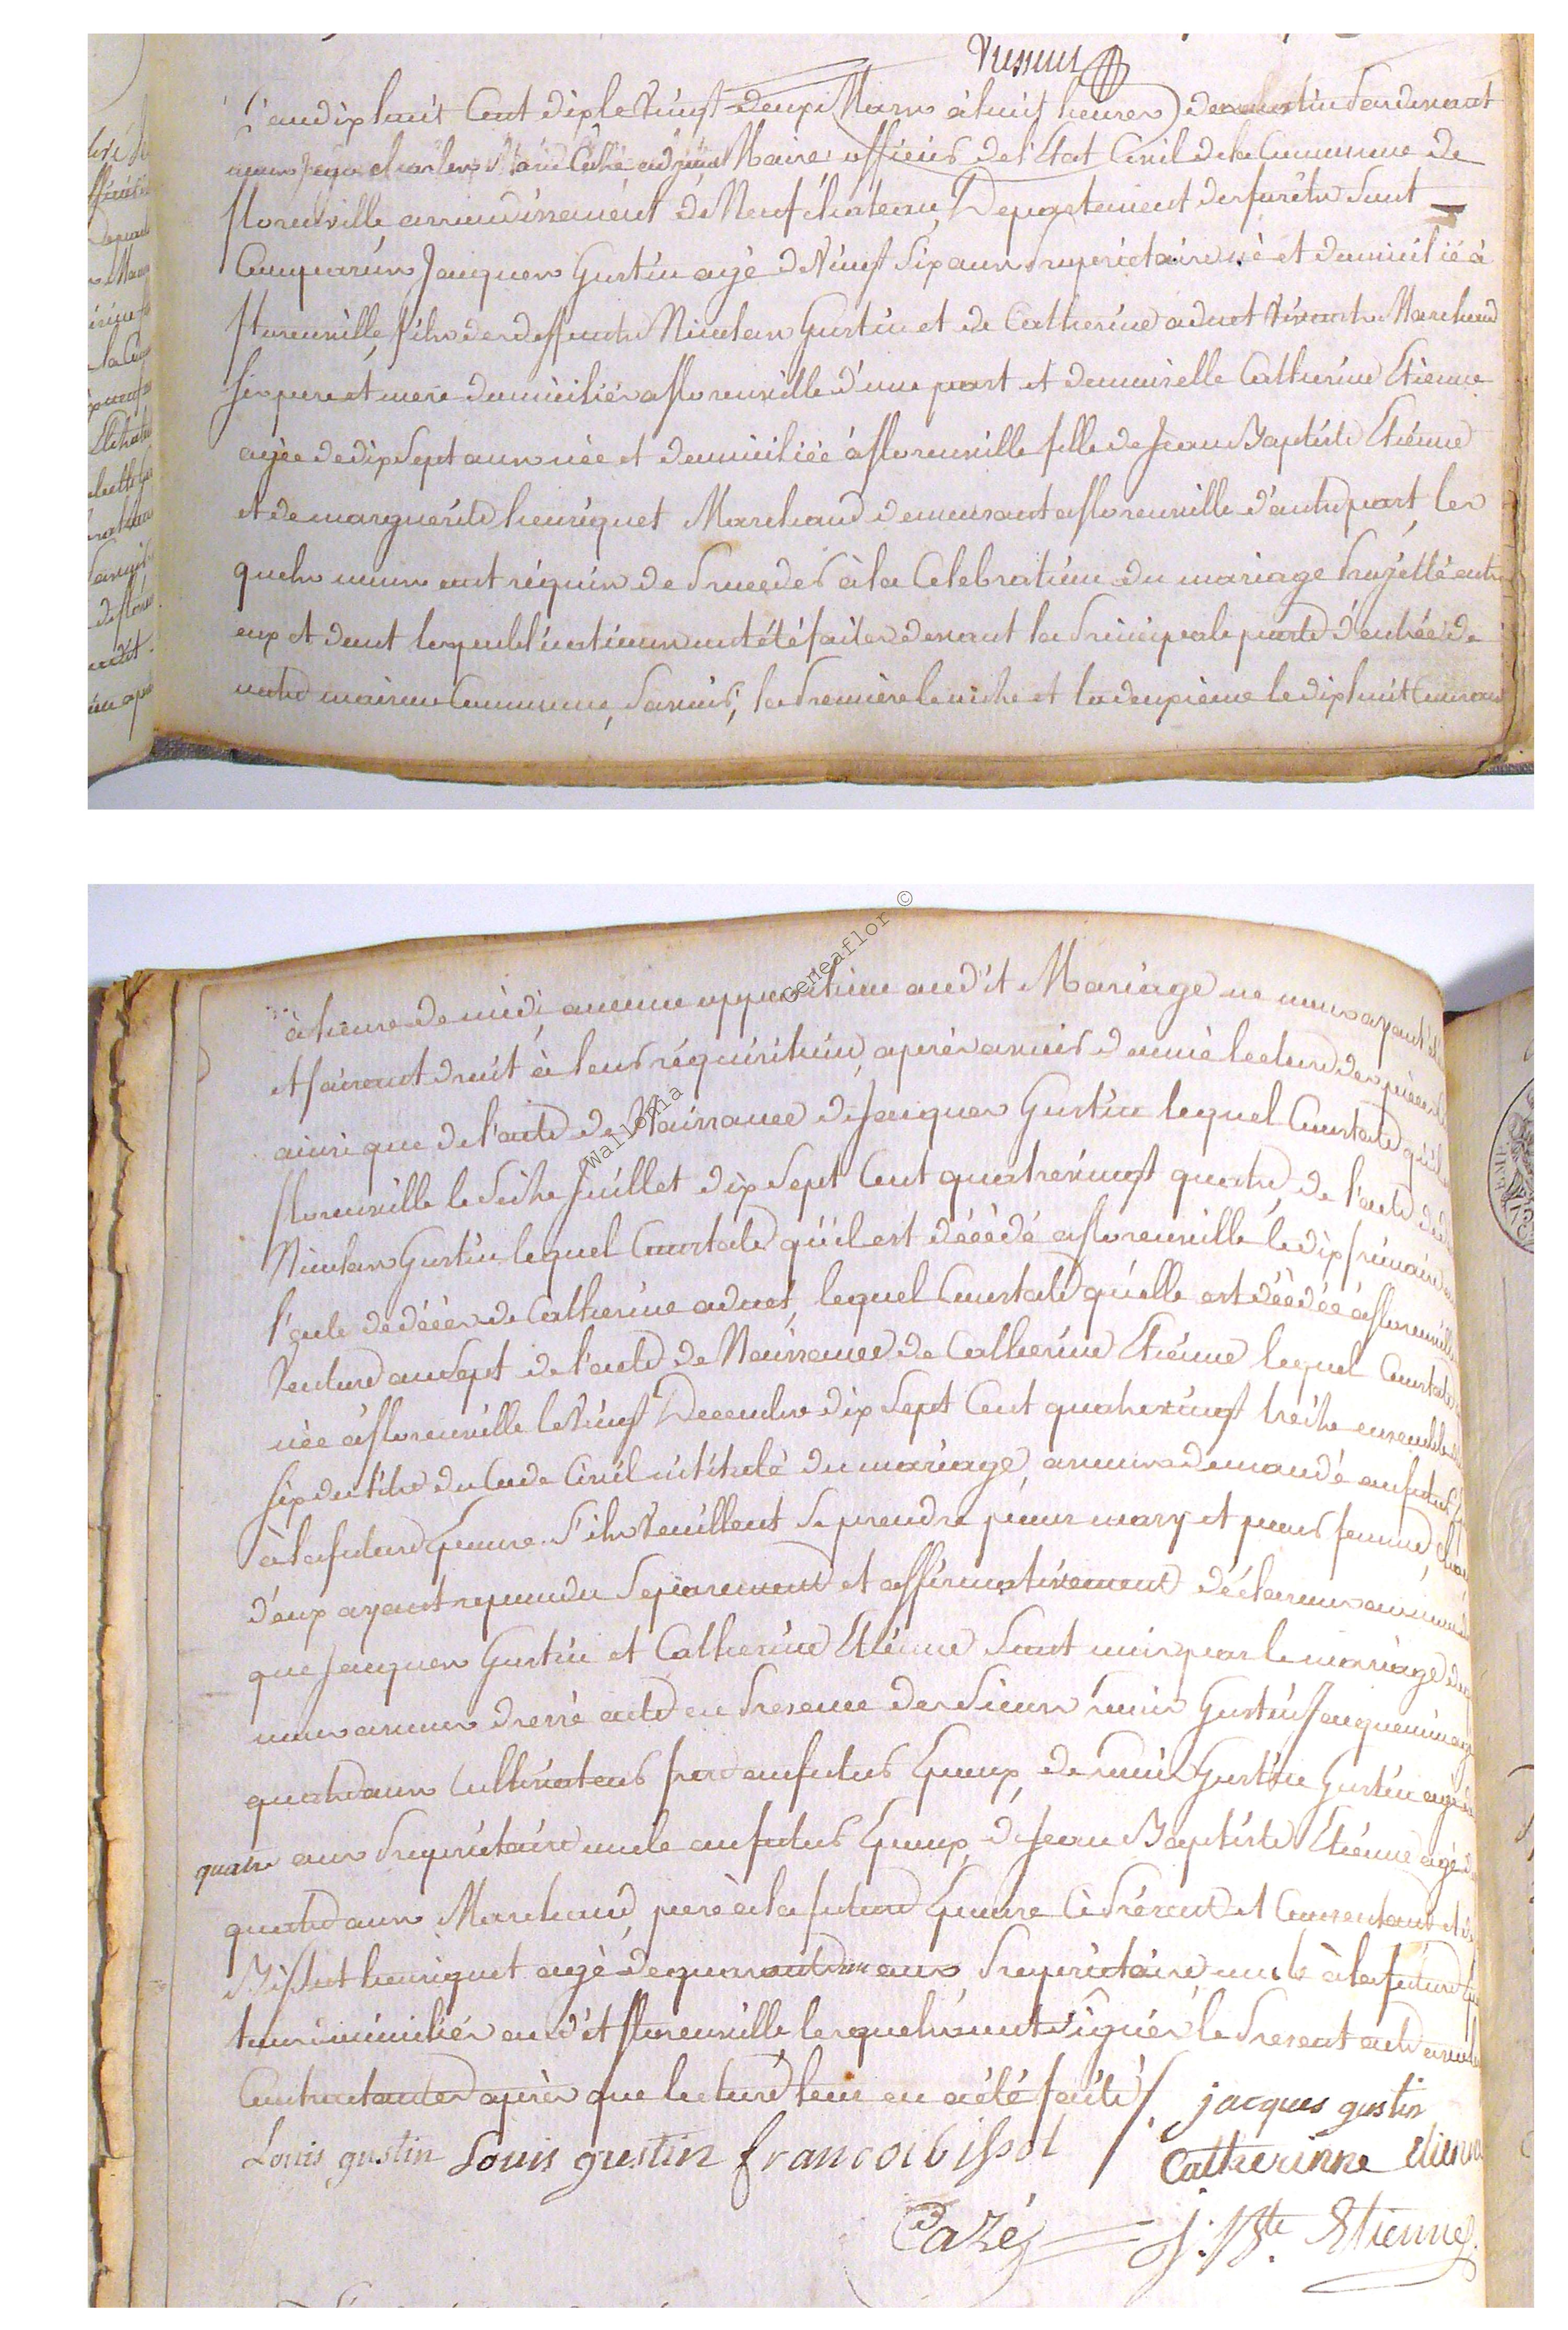 L'an dix huit Cent dix le Vingt deux Mars à huit heures du matin Pardevant
nous Jean charles Marie Cazé adjoint Maire officier de l'Etat Civil de la Commune de
florenville arrondissement de Neufchateau, Departement des forêts Sont
Comparus Jacques Gustin agé de Vingt Six ans Proprietaire né et domicilié à
florenville, fils des deffunts Nicolas Gustin et de Catherine adnet Vivants Marchand
Ses pere et mere domiciliés a florenville d'une part et demoiselle Catherine Etienne
agée de dix Sept ans née et domiciliée à florenville fille de Jean Baptiste Etienne
et de marguerite henriquet Marchand demeurant a florenville d'autre part, les
quels nous ont réquis de Proceder à la Celebration du mariage Projetté entre
eux et dont les publications ont été faites devant la Principale porte d'entrée de
notre maison Commune, Savoir, la Premiere le onze et la deuxieme le dix huit Courant
à heure de midi, aucune opposition audit Mariage ne nous ayant été
et faisant droit à leur réquisition, après avoir donné lecture des pièces
ainsi que de l'acte de Naissance de Jacques Gustin lequel Constate qu'il
florenville le Seize Juillet dix Sept Cent quatrevingt quatre, de l'acte de
Nicolas Gustin lequel Constate qu'il est décédé a florenville le dix frimaire
l'acte de décès de Catherine adnet, lequel Constate qu'elle est décédée à florenville
Ventose an Sept de l'acte de Naissance de Catherine Etienne lequel Constate
née à florenville le Vingt Decembre dix Sept Cent quatrevingt treize ensemble
Six du titre du Code Civil intitulé du mariage, avons demandé au futur
à la future Epouse S'ils Veuillent Se prendre pour mary et pour femme, chacun
d'eux ayant repondu Separement et affirmativement déclarons au nom
que Jacques Gustin et Catherine Etienne Sont unis par le mariage de
nous avons dressé acte en Presence des Sieurs Louis Gustin Jacquemin agé
quatre ans Cultivateur frere au futur Epoux, de Louis Gustin Gustin agé de
quatre ans Proprietaire oncle au futur Epoux, de Jean Baptiste Etienne agé de
quatre ans Marchand, pere à la future Epouse Ci Présent et Consentant et de
Bissot henriquet agé de quarante ans Proprietaire oncle à la future
tous domiciliés audit florenville lesquels ont Signés le Present acte avec les
Contractantes après que lecture leur en a été faite /. jacques gustin
Louis gustin Louis gustin francoi bissot / Catherinne etienne
Cazé J. Bte Etienne
Wallonia Geneaflor ©